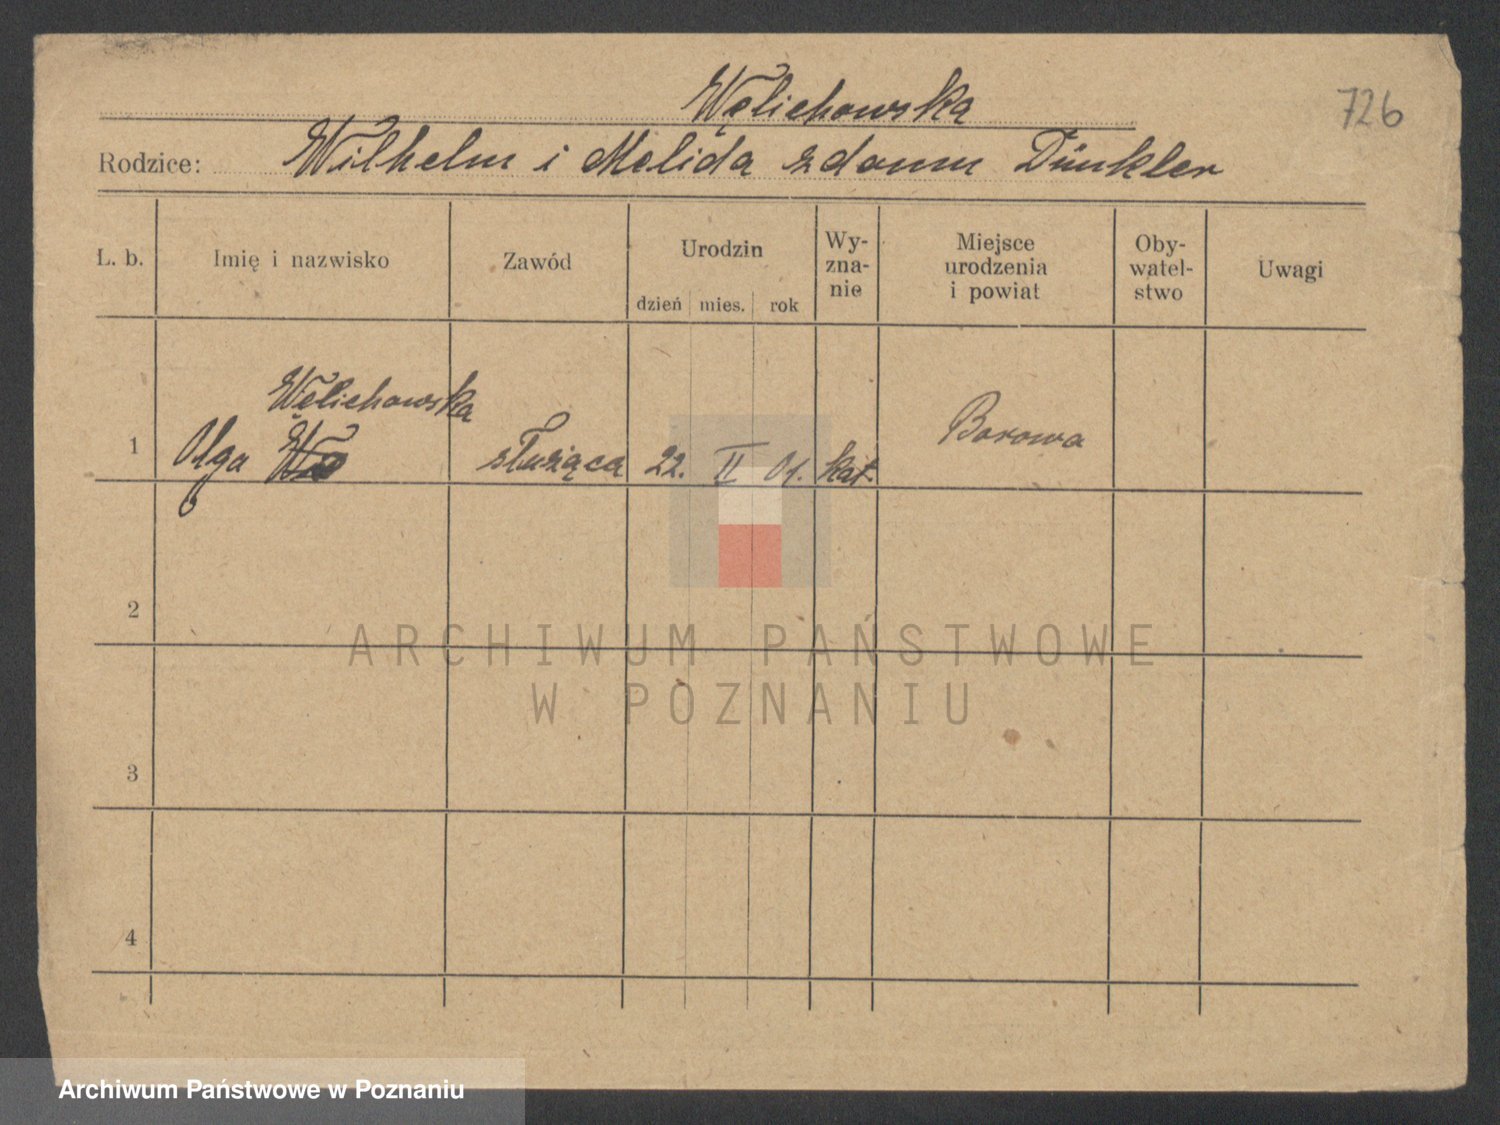 Węlichowska
726
Rodzice: Wilhelm i Melida z domu Dünkler
L. b. Imię i nazwisko Zawód Urodzin dzień mies. rok Wy-zna-nie Miejsce urodzenia i powiat Oby-watel-stwo Uwagi
Węlichowska
1 Olga służąca 22. II 01. kat. Borowa
2
ARCHIWUM PAŃSTWOWE
W POZNANIU
3
4
Archiwum Państwowe w Poznaniu